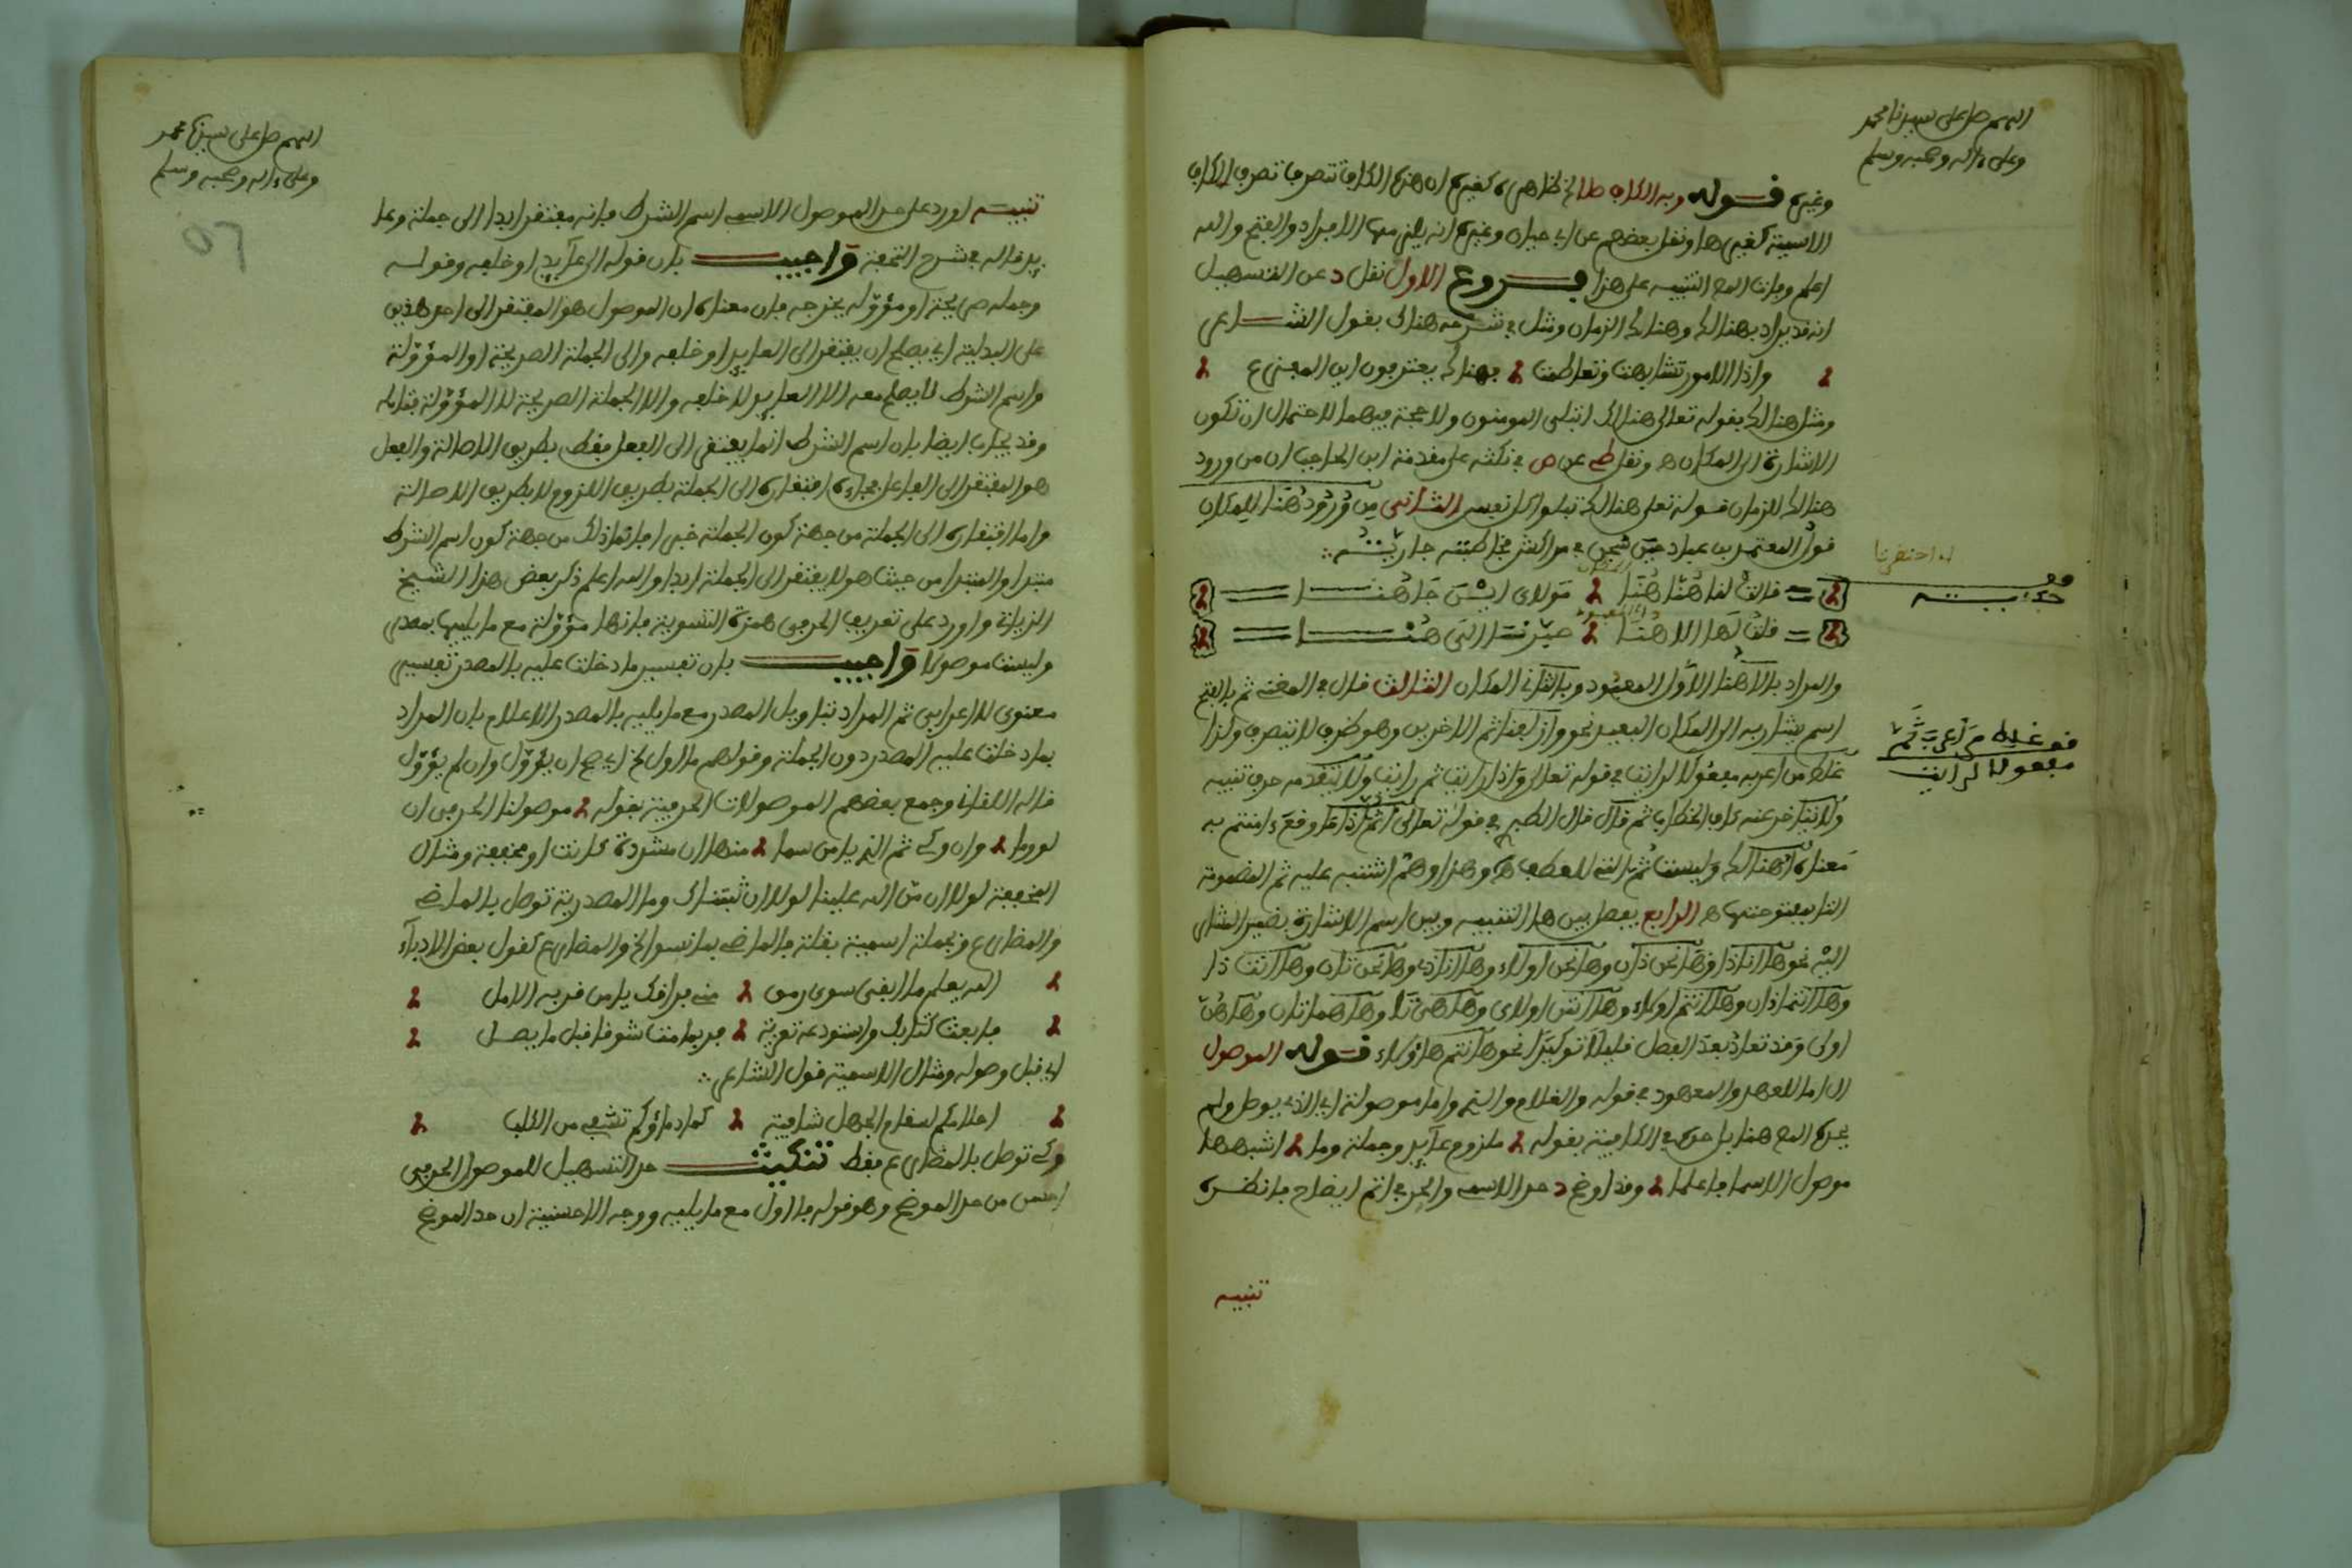 اللهم صل على سيدنا محمد
وعلى ءاله وصحبه وسلم
وغيره قوله وبه الكاف ظاهره كغيره ان هذه الكاف تتصرف تصرف الكاف
الاسمية كغيرها ونقل بعضهم عن ابي حيان وغيره انه يلزم معها الافراد والفتح والله
اعلم وفات المص التنبيه على هذا فروع الاول نقل د عن التسهيل
انه قد يراد بهناك وهنالك الزمان ومثل في شرحه هناك بقول الشاعر
واذا الامور تشابهت وتعاظمت فهناك يعترفون اين المفزع
ومثل هنالك بقوله تعالى هنالك ابتلي المومنون ولا حجة فيهما لاحتمال ان تكون
الاشارة الى المكان ه ونقل عن ص في نكته على مقدمة ابن الحاجب ان من ورود
هنالك للزمان قوله تعلى هنالك تبلوا كل نفس الثاني من ورود هنا للمكان
قول المعتمد بن عباد حين سجن في مراكش مخاطبته جاريته
قالت لقد هنا هنا مولاي اين جاهنا
قلت لها الاهنا صيرنا الى هنا
والمراد بالاهنا الاول المعبود وبالثاني المكان الثالث قال في المغني ثم بالفتح
اسم يشار به الى المكان البعيد نحو وازلفنا ثم الاخرين وهو ظرف لا يتصرف ولذا
غلط من اعربه مفعولا لرايت في قوله تعلى واذا رايت ثم رايت ولا يتقدمه حرف تنبيه
ولا يتاخر عنه كاف الخطاب ثم قال قال الطبري في قوله تعالى اثم اذا ما وقع ءامنتم به
معناه اهنالك وليست ثم التي للعطف ه وهذا وهم اشتبه عليه ثم المضمومة
الثا بمفتوحتها ه الرابع يفصل بين ها التنبيه وبين اسم الاشارة بضمير المشار
اليه نحو ها انا ذا وها نحن ذان وها نحن اولاء وها انا ذي وها نحن تان وها انت ذا
وها انتما ذان وها انتم اولاء وها انتن اولاء وها هي تا وها هما تان وها هن
اولى وقد تعاد بعد الفصل قليلا توكيدا نحو ها انتم هاؤلاء قوله الموصول
ال اما للعهد والمعهود في قوله والغلام والتي واما موصولة اي الذي يوصل ولم
يحده المص هنا بل حده في الكافية بقوله ملزوم عائد وجملة وما اشبهها
موصول الاسما فاعلما وقد اوضح د حد الاسمي والحرفي اتم ايضاح فانظره
تنبيه
له احتضرنا
قف
حكاية
قف غلط من اعرب ثم
مفعولا لرايت
اللهم صل على سيدنا محمد
وعلى ءاله وصحبه وسلم
تنبيه اورد على حد الموصول الاسمي اسم الشرط فانه مفتقر ابدا الى جملة وعا
يد قاله في شرح التحفة واجيب بان قوله الى عايد او خلفه وقوله
وجملة صريحة او مؤولة يخرجه فان معناه ان الموصول هو المفتقر الى احد هذين
على البدلية اي يصلح ان يفتقر الى العايد او خلفه والى الجملة الصريحة او المؤولة
واسم الشرط لا يصلح معه الا العايد لا خلفه والا الجملة الصريحة لا المؤولة فتامله
وقد يجاب ايضا بان اسم الشرط انما يفتقر الى الفعل فقط بطريق الاصالة والفعل
هو المفتقر الى الفاعل فجاء افتقاره الى الجملة بطريق اللزوم لا بطريق الاصالة
واما افتقاره الى الجملة من جهة كون الجملة خبرا فانما ذلك من جهة كون اسم الشرط
مبتدا والمبتدا من حيث هو لا يفتقر الى الجملة ابدا والله اعلم ذكر بعض هذا الشيخ
الزياتي واورد على تعريف الحرفي همزة التسوية فانها مؤولة مع ما يليها بمصدر
وليست موصولا واجيب بان تفسير ما دخلت عليه بالمصدر تفسير
معنوي لا اعرابي ثم المراد بتاويل المصدر مع ما يليه بالمصدر الاعلام بان المراد
بما دخلت عليه المصدر دون الجملة وقولهم ما اول الخ اي صح ان يؤول وان لم يؤول
قاله اللقاني وجمع بعضهم الموصولات الحرفية بقوله موصولنا الحرفي ان
لو وما وان وكي ثم الذي يا من سما منها ان مشددة كانت او مخففة ومثال
المخففة لولا ان من الله علينا لولا ان ثبتناك وما المصدرية توصل بالماضي
والمضارع وبجملة اسمية بقلة فالماضي بما نسوا الخ والمضارع كقول بعض الادباء
الله يعلم ما ابقى سوى رمق مني فراقك يا من قربه الامل
فابعث كتابك واستودعه تعزية فربما مت شوقا قبل ما يصل
اي قبل وصوله ومثال الاسمية قول الشاعر
احلامكم لسقام الجهل شافية كما دماؤكم تشفي من الكلب
وكي توصل بالمضارع فقط تنكيت حد التسهيل للموصول الحرفي
احسن من حد الموضح وهو قوله ما اول مع ما يليه ووجه الاحسنية ان حد الموضح